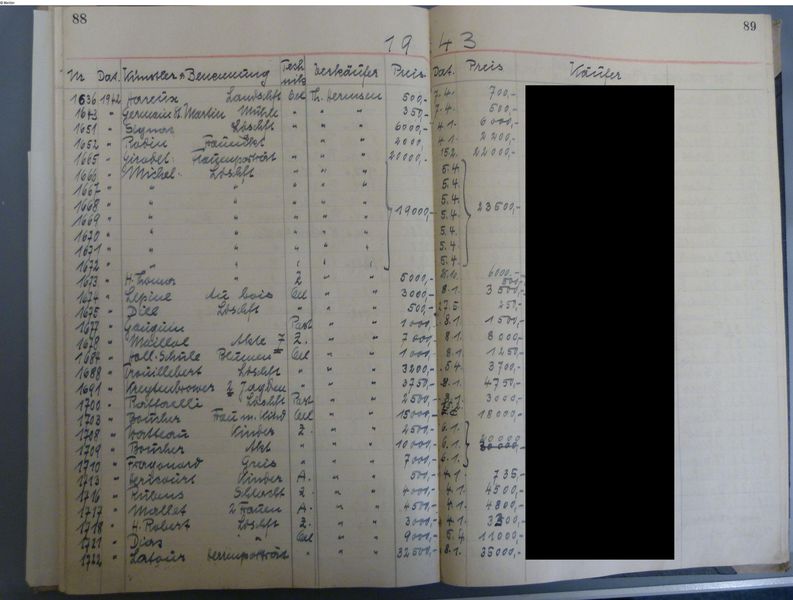 88
89
19 43
Nr. Dat. Künstler u. Benennung Technik Verkäufer Preis Dat. Preis Käufer
1636 1942 Landschft Oel Th. Hermsen 500,- 7.4. 700,-
1643 " Germain St. Martin Mühle " " " 350,- 7.4. 500,-
1651 " Signac Ldschft " " " 6000,- 4.1. 6000,-
1652 " Robin " " " 2000,- 4.1. 2200,-
1665 " Girodet Frauenporträt " " " 20000,- 152. 22000,-
1666 " Michel Ldschft " " " 5.4.
1667 " " " " " " 5.4.
1668 " " " " " " 5.4.
1669 " " " " " " 19000,- 5.4. 23500,-
1670 " " " " " " 5.4.
1671 " " " " " " 5.4.
1672 " " " " " " 5.4.
1673 " H. Thoma " Z " " 5000,- 6000,-
1674 " Lépine Au bois Oel " " 3000,- 8.1. 3500,-
1675 " Dill Ldschft " " " 500,- 27.5. 250,-
1677 " Gauguin Past " " 1000,- 8.1. 1500,-
1678 " Maillol Akte 7 Z. " " 7000,- 8.1. 8000,-
1684 " Holl. Schule Blumen Oel " " 1000,- 8.1. 1250,-
1688 " Trouillebert Ldschft " " " 3200,- 5.4. 3700,-
1691 " 2 Jagden " " " 3750,- 8.1. 4750,-
1700 " Raffaelli Ldschft Past " " 2500,- 3000,-
1703 " Boucher Frau m. Kind Oel " " 15000,- 18000,-
1708 " Watteau Kinder Z. " " 2500,- 6.1.
1709 " Boucher Akt " " " 10000,- 6.1. 20000,-
1710 " Fragonard Greis " " " 7000,- 6.1.
1713 " Hericourt Kinder A. " " 500,- 4.1. 735,-
1716 " Rubens Schlacht Z. " " 4000,- 4.1. 4500,-
1717 " Mallet 2 Frauen A. " " 4500,- 4.1. 4800,-
1718 " H. Robert Ldschft Z. " " 3000,- 4.1. 3300,-
1721 " Diaz " Oel " " 9000,- 5.4. 11000,-
1722 " Latour Herrenporträt " " " 32500,- 8.1. 35000,-